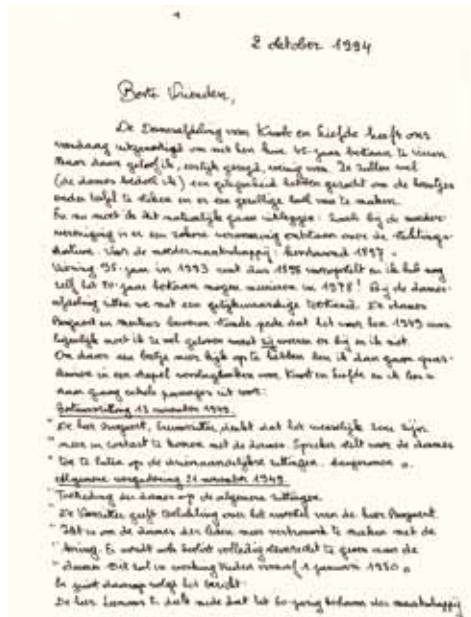 2 oktober 1994
Beste Vrienden,
De Damesafdeling van Kunst en Liefde heeft ons
vandaag uitgenodigd om met hen hun 45-jaar bestaan te vieren.
Maar daar geloof ik, eerlijk gezegd, weinig van. Ze zullen wel
(de dames bedoel ik) een gelegenheid hebben gezocht om de beentjes
onder tafel te steken en er een gezellige boel van te maken.
En nu moet ik dat natuurlijk gaan uitleggen. Zoals bij de moeder-
vereniging is er een zekere verwarring ontstaan over de stichtings-
datum. Voor de moedermaatschappij: 1897.
Viering 95-jaar in 1993 want dus 1898 vooropstelt en ik heb nog
zelf het 80-jaar bestaan mogen in 1978! Bij de dames-
afdeling zitten we met een gelijkwaardige toestand. De dames
en beweren dat het voor hen 1949 was
eigenlijk moet ik ze wel geloven want zij waren er bij en ik niet.
Om daar een beetje meer kijk op te hebben ben ik dan gaan
in een stapel van Kunst en Liefde en ik lees u
daar graag enkele passages uit voor:
Bestuurszitting 13 november 1949.
" De heer , denkt dat het wenselijk zou zijn
" meer in contact te komen met de dames. Spreker stelt voor de dames
" toe te laten op de driemaandelijkse zittingen. Aangenomen ".
Algemene vergadering 21 november 1949
" Toetreding der dames op de algemene zittingen.
" De Voorzitter geeft over het voorstel van de heer
" Dat is om de dames der leden meer vertrouwd te maken met de
" kring. Er wordt ook beslist volledig te geven aan de
" dames. Dit zal in werking treden vanaf 1 januari 1950 "
En juist daarop volgt het bericht:
De heer deelt mede dat het 50-jarig bestaan der maatschappij